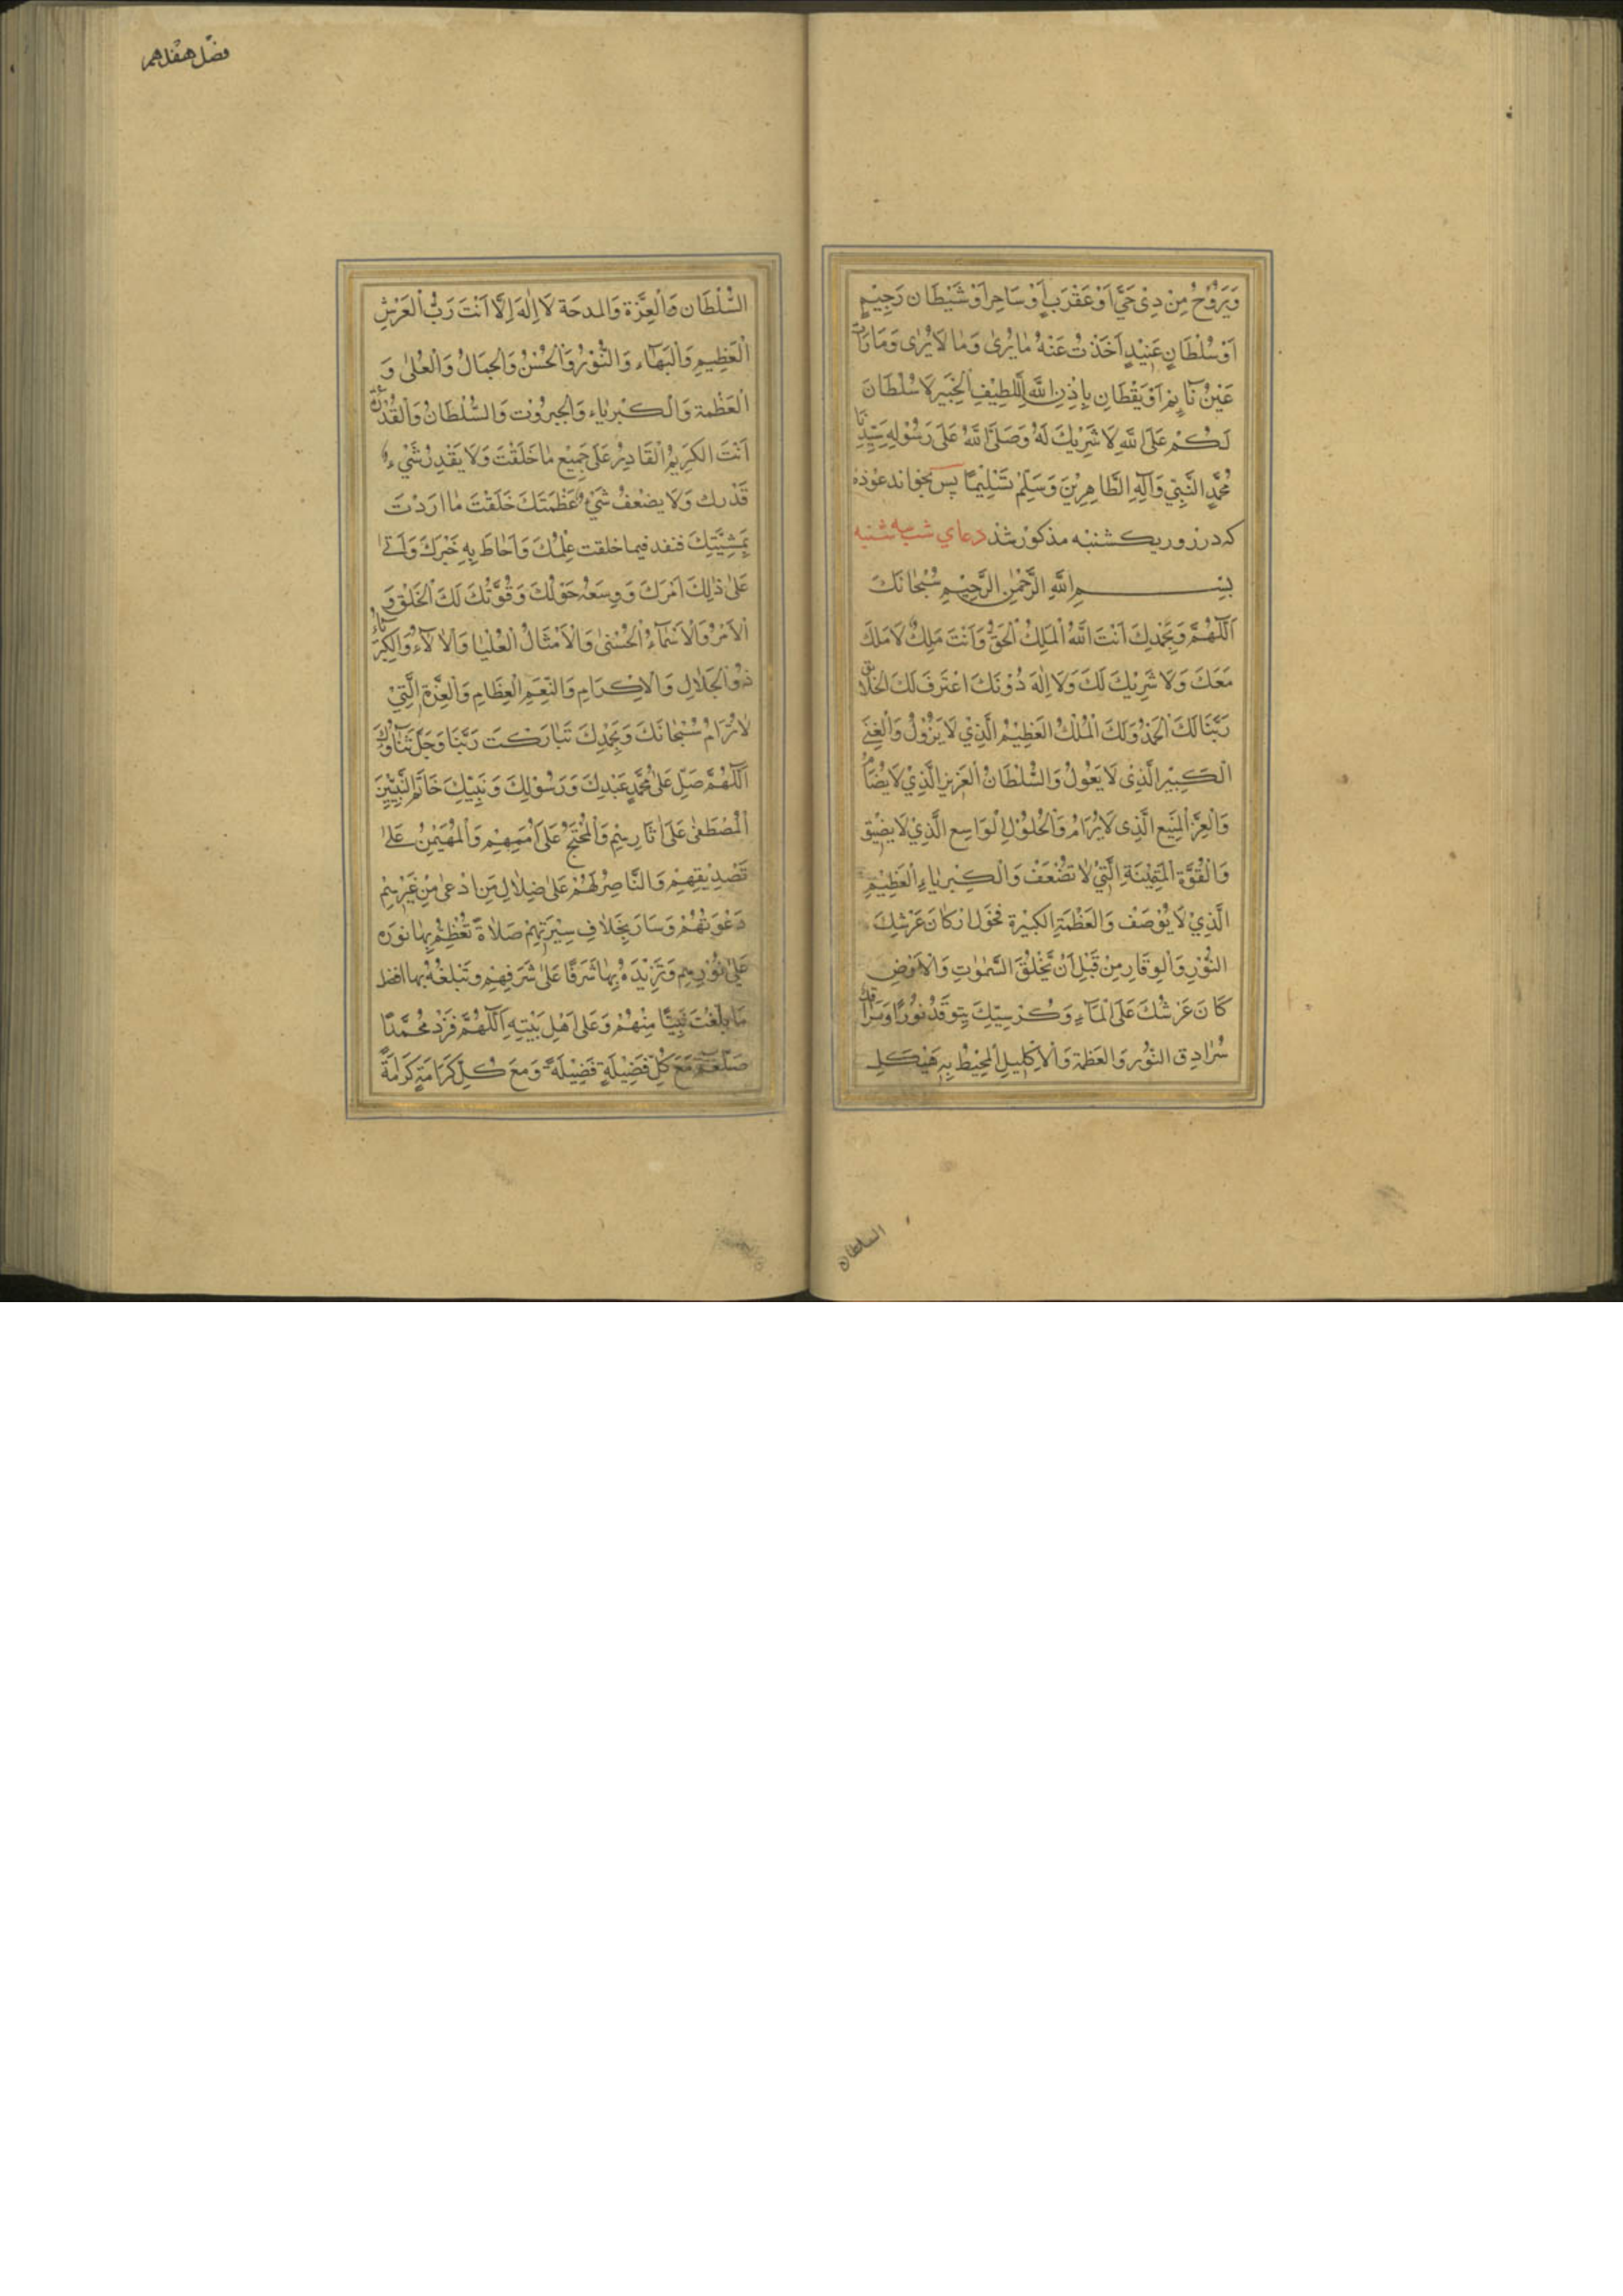 وَيَرُوحُ مِنْ ذِي حَيٍّ اَوْ عَقْرَبٍ اَوْ سَاحِرٍ اَوْ شَيْطَانٍ رَجِيْمٍ
اَوْ سُلْطَانٍ عَنِيْدٍ اَخَذْتُ عَنْهُ مَا يُرٰى وَمَا لَا يُرٰى وَمَا رَأَتْ
عَيْنُ نَآئِمٍ اَوْ يَقْظَانٍ بِاِذْنِ اللّٰهِ اللَّطِيْفِ الْخَبِيْرِ لَا سُلْطَانَ
لَكُمْ عَلَى اللّٰهِ لَا شَرِيْكَ لَهُ وَصَلَّى اللّٰهُ عَلٰى رَسُوْلِهِ سَيِّدِنَا
مُحَمَّدٍ النَّبِيِّ وَآلِهِ الطَّاهِرِيْنَ وَسَلَّمَ تَسْلِيْمًا پس بخواند عوذه
كه در روز يكشنبه مذكور شد دعاي شب سه شنبه
بِسْمِ اللّٰهِ الرَّحْمٰنِ الرَّحِيْمِ سُبْحَانَكَ
اَللّٰهُمَّ وَبِحَمْدِكَ اَنْتَ اللّٰهُ الْمَلِكُ الْحَقُّ وَاَنْتَ مَلِكٌ لَا مَلِكَ
مَعَكَ وَلَا شَرِيْكَ لَكَ وَلَا اِلٰهَ دُوْنَكَ اعْتَرَفَ لَكَ الْخَلَائِقُ
رَبَّنَا لَكَ الْحَمْدُ وَلَكَ الْمُلْكُ الْعَظِيْمُ الَّذِيْ لَا يَزُوْلُ وَالْغِنَى
الْكَبِيْرُ الَّذِيْ لَا يَعُوْلُ وَالسُّلْطَانُ الْعَزِيْزُ الَّذِيْ لَا يُضَامُ
وَالْعِزُّ الْمَنِيْعُ الَّذِي لَا يُرَامُ وَالْحَوْلُ الْوَاسِعُ الَّذِيْ لَا يَضِيْقُ
وَالْقُوَّةُ الْمَتِيْنَةُ الَّتِيْ لَا تَضْعُفُ وَالْكِبْرِيَاءُ الْعَظِيْمُ
الَّذِيْ لَا يُوْصَفُ وَالْعَظَمَةُ الْكَبِيْرَةُ فَحَوْلَ اَرْكَانِ عَرْشِكَ
النُّوْرُ وَالْوَقَارُ مِنْ قَبْلِ اَنْ تَخْلُقَ السَّمٰوَاتِ وَالْاَرْضِ
كَانَ عَرْشُكَ عَلَى الْمَآءِ وَكُرْسِيُّكَ يَتَوَقَّدُ نُوْرًا وَسُرَادِقُكَ
سُرَادِقَ النُّوْرِ وَالْعَظَمَةِ وَالْاِكْلِيْلُ الْمُحِيْطُ بِهِ هَيْكَلُ
السلطان
فصل هفدهم
السُّلْطَانِ وَالْعِزَّةِ وَالْمِدْحَةِ لَا اِلٰهَ اِلَّا اَنْتَ رَبُّ الْعَرْشِ
الْعَظِيْمِ وَالْبَهَآءِ وَالنُّوْرِ وَالْحُسْنِ وَالْجَمَالِ وَالْعُلٰى وَ
الْعَظَمَةِ وَالْكِبْرِيَاءِ وَالْجَبَرُوْتِ وَالسُّلْطَانِ وَالْقُدْرَةِ
اَنْتَ الْكَرِيْمُ الْقَادِرُ عَلٰى جَمِيْعِ مَا خَلَقْتَ وَلَا يَقْدِرُ شَيْءٌ
قَدْرَكَ وَلَا يُضْعِفُ شَيْءٌ عَظَمَتَكَ خَلَقْتَ مَا اَرَدْتَ
بِمَشِيَّتِكَ فنفد فيما خلقت عِلْمُكَ وَاَحَاطَ بِهِ خُبْرُكَ وَاَتٰى
عَلٰى ذٰلِكَ اَمْرُكَ وَوَسِعَهُ حَوْلُكَ وَقُوَّتُكَ لَكَ الْخَلْقُ وَ
الْاَمْرُ وَالْاَسْمَآءُ الْحُسْنٰى وَالْاَمْثَالُ الْعُلْيَا وَالْآلَآءُ وَالْكِبْرِيَاءُ
ذُو الْجَلَالِ وَالْاِكْرَامِ وَالنِّعَمِ الْعِظَامِ وَالْعِزَّةِ الَّتِيْ
لَا تُرَامُ سُبْحَانَكَ وَبِحَمْدِكَ تَبَارَكْتَ رَبَّنَا وَجَلَّ ثَنَاؤُكَ
اَللّٰهُمَّ صَلِّ عَلٰى مُحَمَّدٍ عَبْدِكَ وَرَسُوْلِكَ وَنَبِيِّكَ خَاتَمِ النَّبِيِّيْنَ
الْمُصْطَفٰى عَلٰى آثَارِهِمْ وَالْمُحْتَجِّ عَلٰى اُمَمِهِمْ وَالْمُهَيْمِنِ عَلٰى
تَصْدِيْقِهِمْ وَالنَّاصِرِ لَهُمْ عَلٰى ضَلَالِ مَنِ ادَّعٰى مِنْ غَيْرِهِمْ
دَعْوَتَهُمْ وَسَارَ بِخِلَافِ سِيْرَتِهِمْ صَلَاةً تُعَظِّمُ بِهَا نُوْرَهُ
عَلٰى نُوْرِهِمْ وَتَزِيْدُهُ بِهَا شَرَفًا عَلٰى شَرَفِهِمْ وَتُبَلِّغُهُ بِهَا افضل
مَا بَلَّغْتَ نَبِيًّا مِنْهُمْ وَعَلٰى اَهْلِ بَيْتِهِ اَللّٰهُمَّ فَزِدْ مُحَمَّدًا
صلعم مَعَ كُلِّ فَضِيْلَةٍ فَضِيْلَةً وَمَعَ كُلِّ كَرَامَةٍ كَرَامَةً